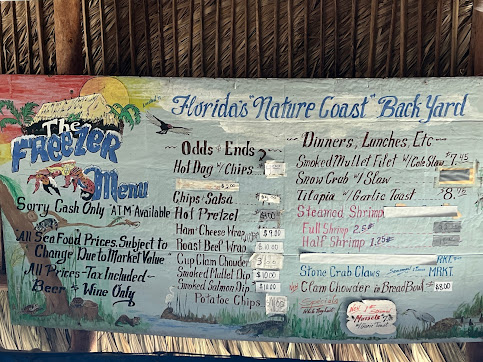 The
FREEZER
Menu
Sorry Cash Only "ATM Available
All Sea Food Prices Subject to
Change Due to Market Value
All Prices-Tax Included-
Beer & Wine Only
Florida's "Nature Coast" Back Yard
Odds & Ends
Hot Dog w/ Chips
Chips & Salsa
Hot Pretzel
Ham/Cheese Wrap $9.00
Roast Beef Wrap
Cup Clam Chowder
Smoked Mullet Dip $10.00
Smoked Salmon Dip $10.00
Potatoe Chips
Dinners, Lunches, Etc
Smoked Mullet Filet w/ Cole Slaw $7.45
Snow Crab w/ Slaw
Tilapia w/ Garlic Toast
Steamed Shrimp
Full Shrimp 2.5#
Half Shrimp 1.25#
MKT.
Stone Crab Claws MRKT.
Clam Chowder in Bread Bowl
Specials
Mussels